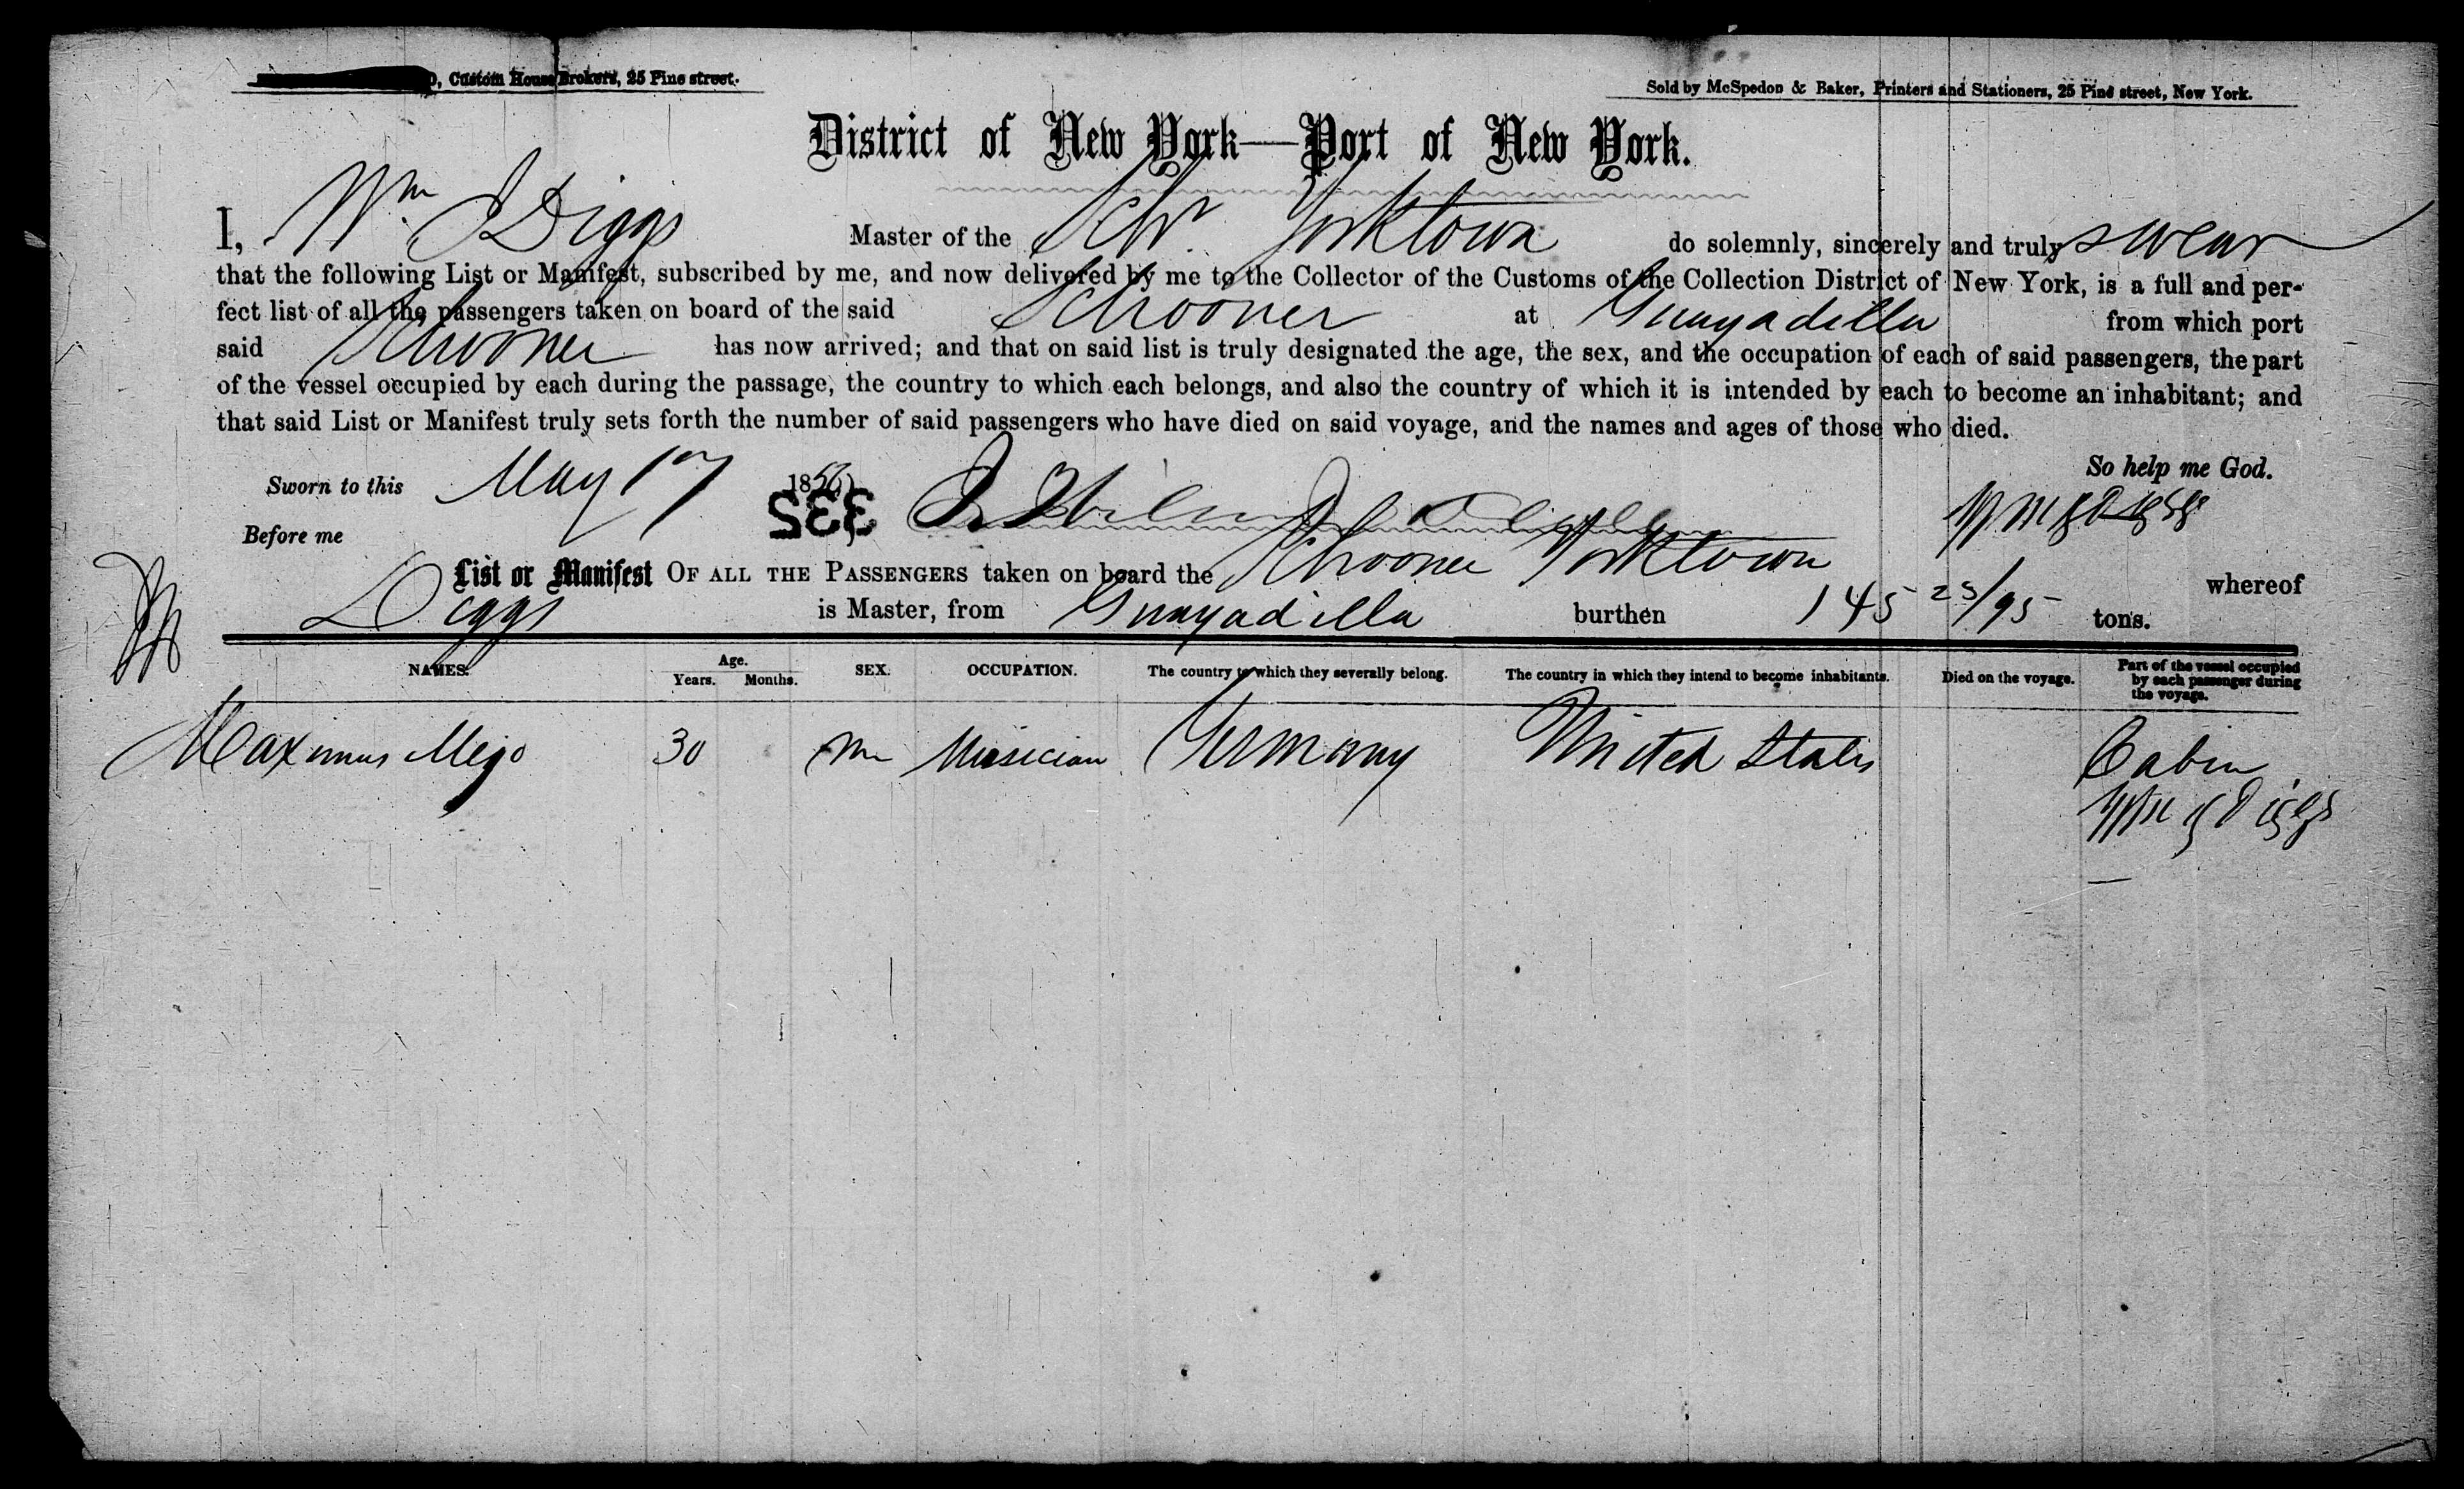 , Custom House Brokers, 25 Pine street.
Sold by McSpedon & Baker, Printers and Stationers, 25 Pine street, New York.
District of New York—Port of New York.
I, Wm J Diggs Master of the Schr. Yorktown do solemnly, sincerely and truly swear
that the following List or Manifest, subscribed by me, and now delivered by me to the Collector of the Customs of the Collection District of New York, is a full and per-
fect list of all the passengers taken on board of the said Schooner at Guayadilla from which port
said Schooner has now arrived; and that on said list is truly designated the age, the sex, and the occupation of each of said passengers, the part
of the vessel occupied by each during the passage, the country to which each belongs, and also the country of which it is intended by each to become an inhabitant; and
that said List or Manifest truly sets forth the number of said passengers who have died on said voyage, and the names and ages of those who died.
So help me God.
Sworn to this May 17 1856
332
Before me
Wm J Diggs
List or Manifest OF ALL THE PASSENGERS taken on board the Schooner Yorktown whereof
Diggs is Master, from Guayadilla burthen 145 25/95 tons.
NAMES. Age. Years. Months. SEX. OCCUPATION. The country to which they severally belong. The country in which they intend to become inhabitants. Died on the voyage. Part of the vessel occupied by each passenger during the voyage.
Maximus Mejo 30 m Musician Germany United States Cabin
Wm J Diggs